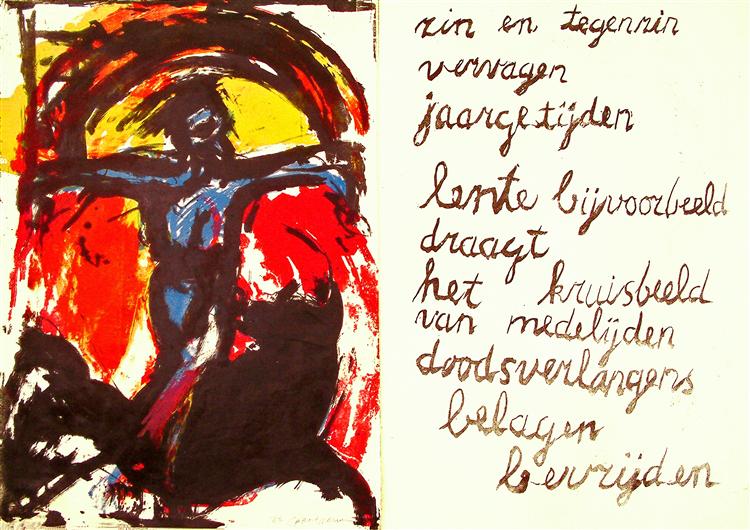 zin en tegenzin
vervagen
jaargetijden
lente bijvoorbeeld
draagt
het kruisbeeld
van medelijden
doodsverlangens
belagen
bevrijden